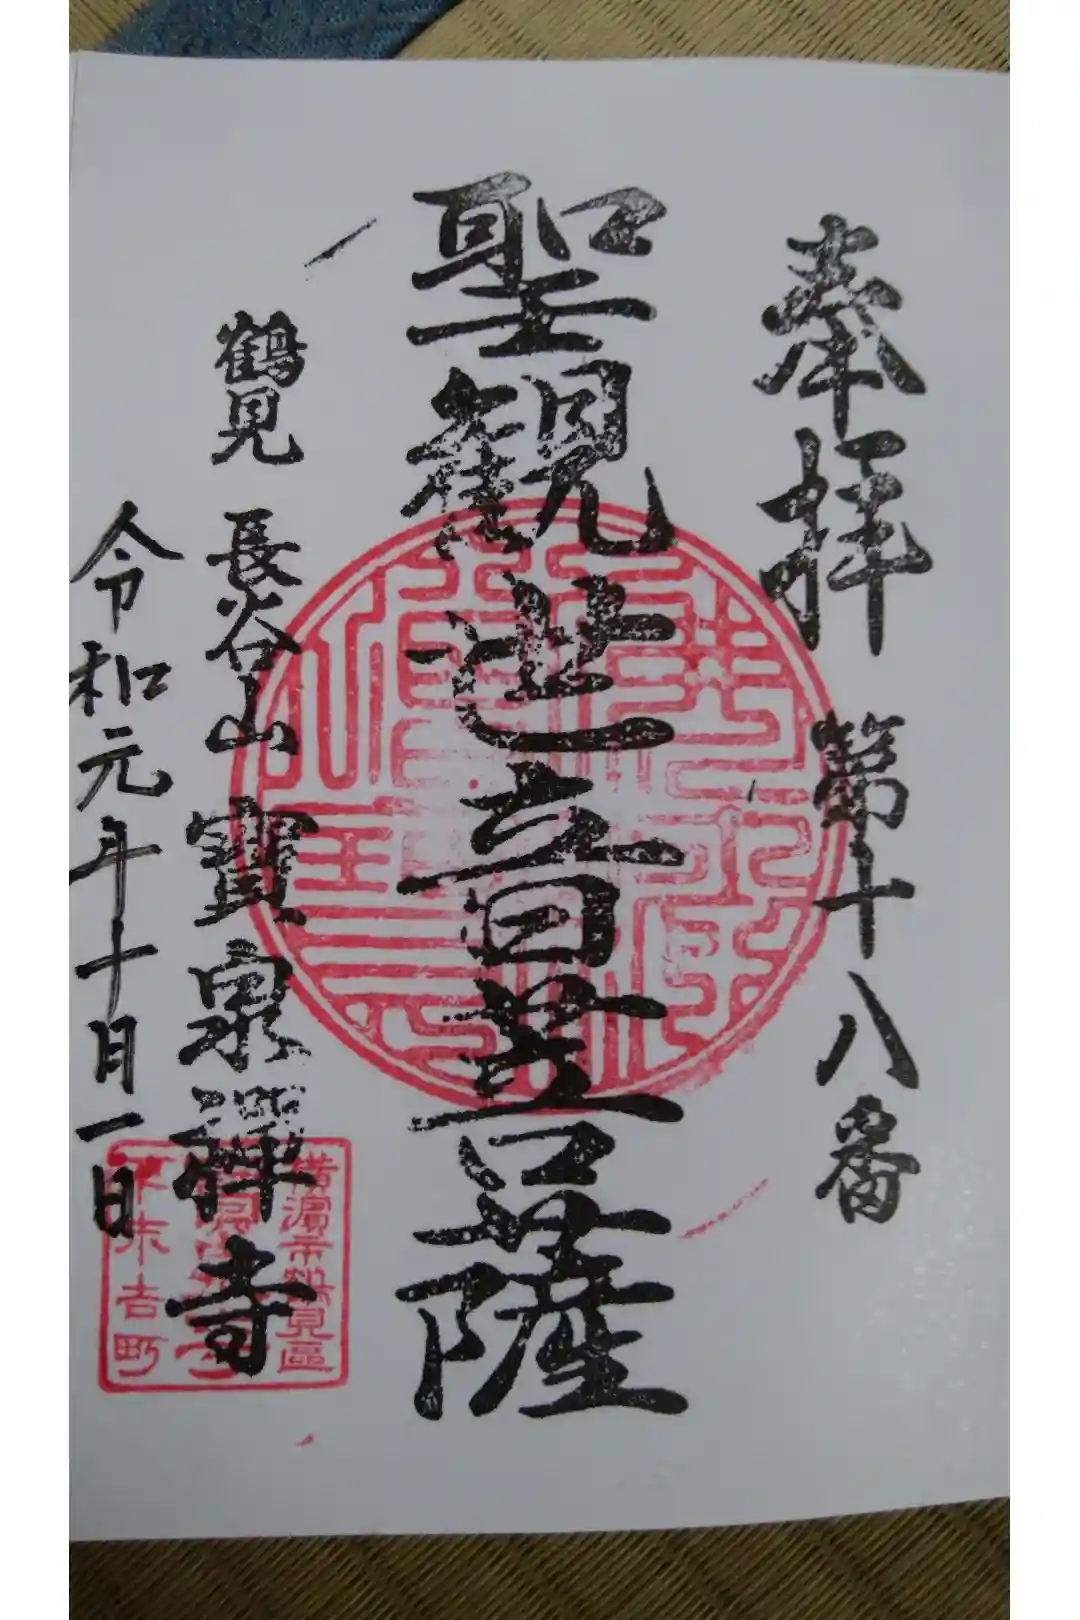 奉拝 第十八番
聖観世音菩薩
鶴見 長谷山 寶泉禅寺
令和元年十月一日
横濵市鶴見區
下末吉町